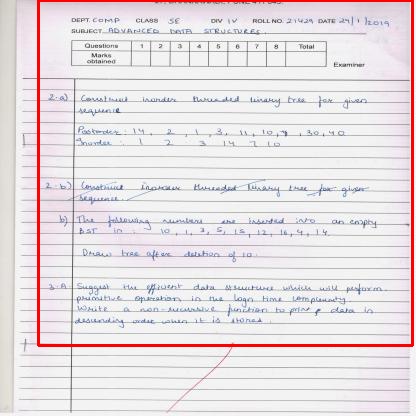 DEPT. COMP CLASS SE DIV IV ROLL NO. 21429 DATE 29/1/2019
SUBJECT ADVANCED DATA STRUCTURES.
Questions 1 2 3 4 5 6 7 8 Total
Marks obtained
Examiner
2.a) Construct inorder threaded binary tree for given
sequence
Postorder: 14, 2, 1, 3, 11, 10, 7, 30, 40
Inorder: 1 2 3 14 7 10
2.b) Construct inorder threaded binary tree for given
sequence.
b) The following numbers are inserted into an empty
BST in: 10, 1, 3, 5, 15, 12, 16, 4, 14
Draw tree after deletion of 10.
3.A Suggest the efficient data structure which will perform
primitive operation in the logn time complexity
Write a non-recursive function to print data in
descending order when it is stored.